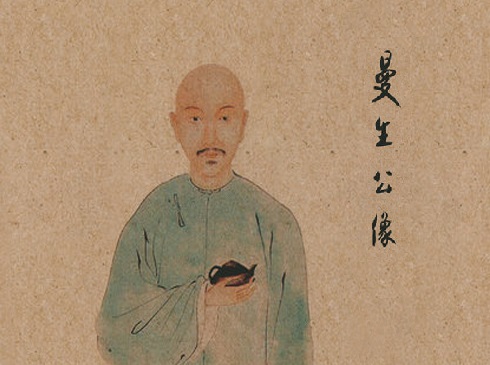 曼生公像